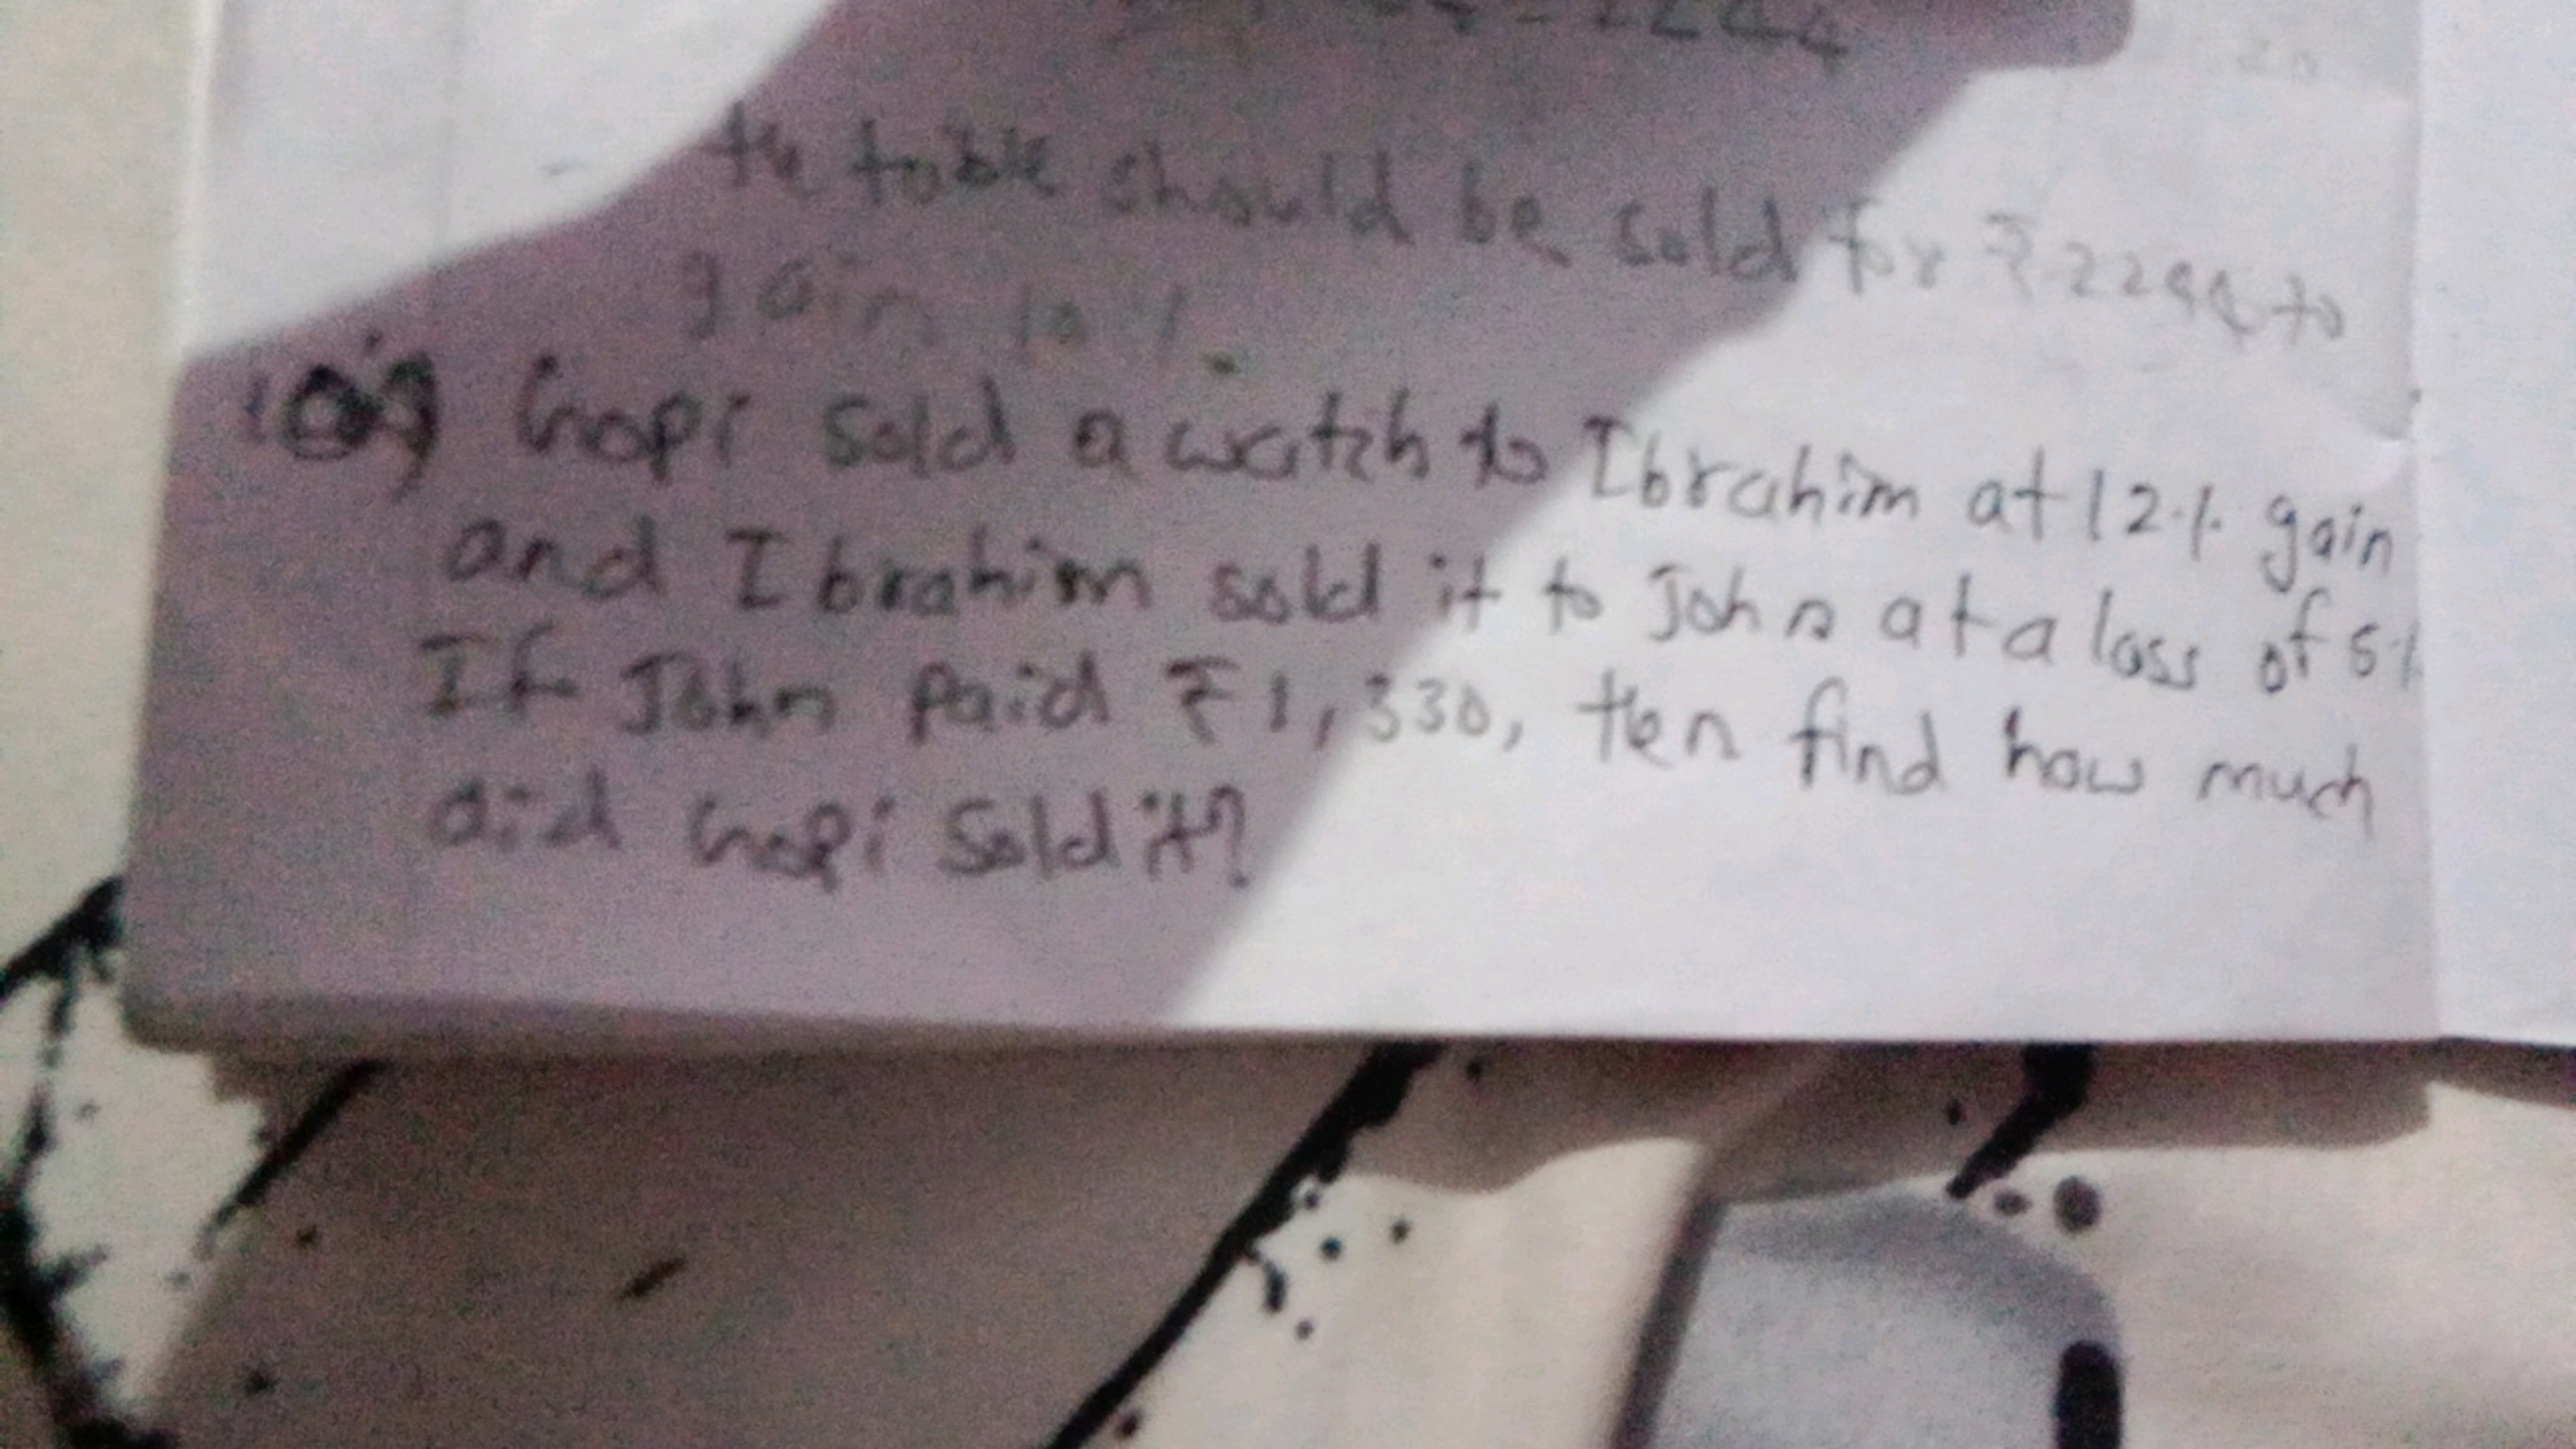 te table should be sold for ₹2244 to
gain 10%.
Gopi sold a watch to Ibrahim at 12% gain
and Ibrahim sold it to John at a loss of 5%
If John paid ₹1,330, then find how much
did Gopi Sold it?